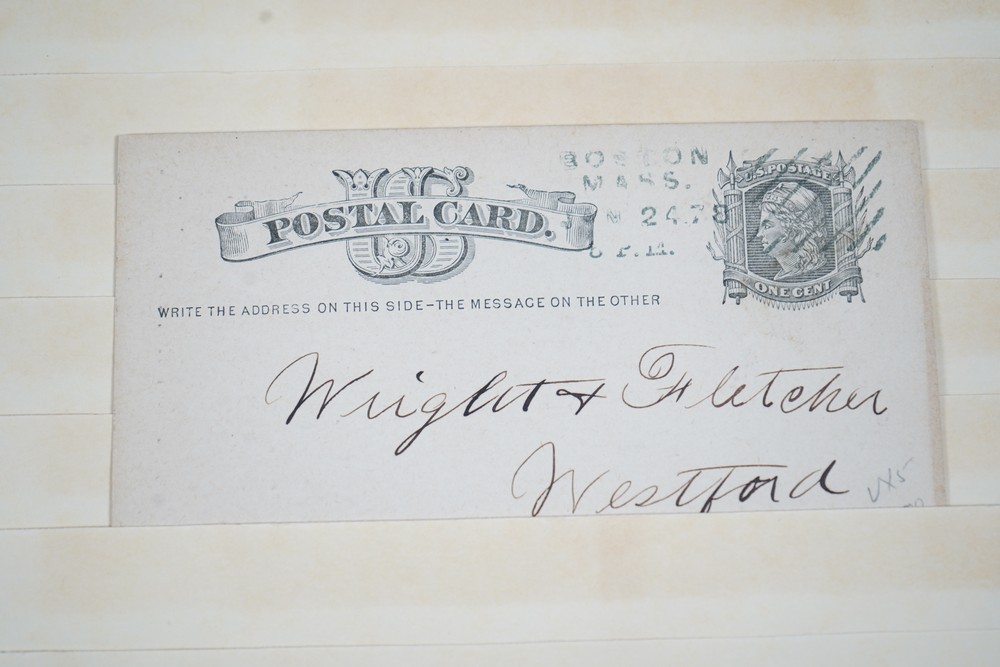 U.S.
POSTAL CARD.
WRITE THE ADDRESS ON THIS SIDE–THE MESSAGE ON THE OTHER
BOSTON
MASS.
24.78
P.M.
U.S. POSTAGE
ONE CENT
Wright & Fletcher
Westford
UX5